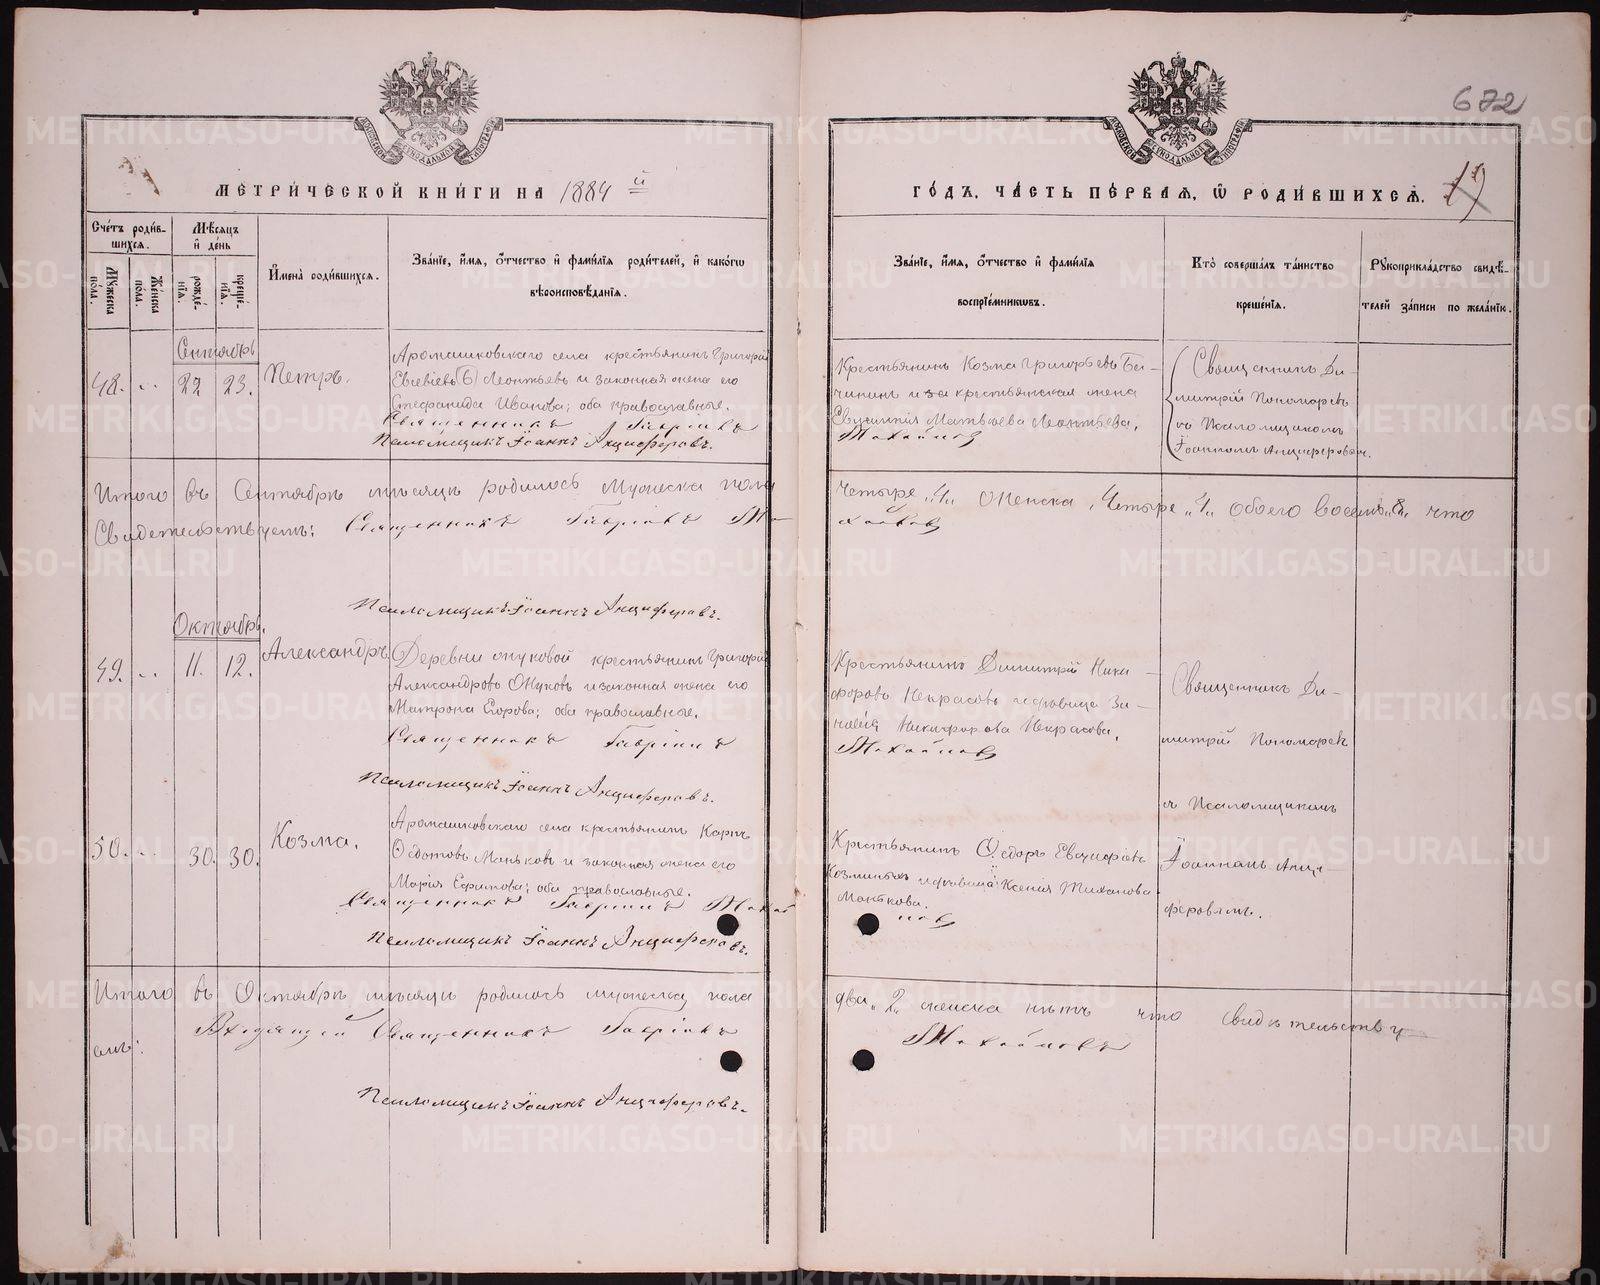 672
МОСКОВСКОЙ СѴНОДАЛЬНОЙ ТИПОГРАФІИ
МОСКОВСКОЙ СѴНОДАЛЬНОЙ ТИПОГРАФІИ
МЕТРИЧЕСКОЙ КНИГИ НА 1884 й
ГОДЪ, ЧАСТЬ ПЕРВАЯ, Ѡ РОДИВШИХСЯ.
Счетъ родив-
шихся.
Мѣсяцъ
и день
Мужеска
пола.
Женска
пола.
рожде-
нія.
креще-
нія.
Имена родившихся.
Званіе, имя, отчество и фамилія родителей, и какого
вѣроисповѣданія.
Званіе, имя, отчество и фамилія
воспріемниковъ.
Кто совершалъ таинство
крещенія.
Рукоприкладство свидѣ-
телей записи по желанію.
Сентябрь
48. „ 22. 23. Петръ.
Аромашковскаго села крестьянинъ Григорій
Леонтьевъ и законная жена его
Стефанида Иванова; оба православные.
Священникъ Гавріилъ
Псаломщикъ Іоаннъ Анциферовъ.
Крестьянинъ Козма Григорьевъ
и крестьянская жена
Матвѣева Леонтьева.
Священникъ Ди-
митрій Пономаревъ
съ Псаломщикомъ
Іоанномъ Анциферовым.
Итого въ Сентябрѣ мѣсяцѣ родилось Мужеска пола
четыре „4„ Женска „Четыре„ 4„ обоего восемь „8„ что
Свидетельствуемъ: Священникъ Гавріилъ
Псаломщикъ Іоаннъ Анциферовъ.
Октябрь.
49. „ 11. 12. Александръ
Деревни Жуковой крестьянинъ Григорій
Александровъ Жуковъ и законная жена его
Матрона Егорова; оба православные.
Священникъ Гавріилъ
Псаломщикъ Іоаннъ Анциферовъ.
Крестьянинъ Димитрій Ники-
форовъ Некрасовъ и дѣвица Зи-
Никифорова Некрасова.
Священникъ Ди-
митрій Пономаревъ
съ Псаломщикомъ
Іоанномъ Анци-
феровымъ.
50. „ 30. 30. Козма.
Аромашковскаго села крестьянинъ Карпъ
Ѳедотовъ Маньковъ и законная жена его
Марія Ефимова; оба православные.
Священникъ Гавріилъ
Псаломщикъ Іоаннъ Анциферовъ.
Крестьянинъ Ѳедоръ
Козминыхъ и дѣвица Ксенія Тиханова
Манькова.
Итого въ Октябрѣ мѣсяцѣ родилось мужеска пола
два „2„ женска нѣтъ что свидѣтельству-
емъ: Священникъ Гавріилъ
Псаломщикъ Іоаннъ Анциферовъ.
METRIKI.GASO-URAL.RU